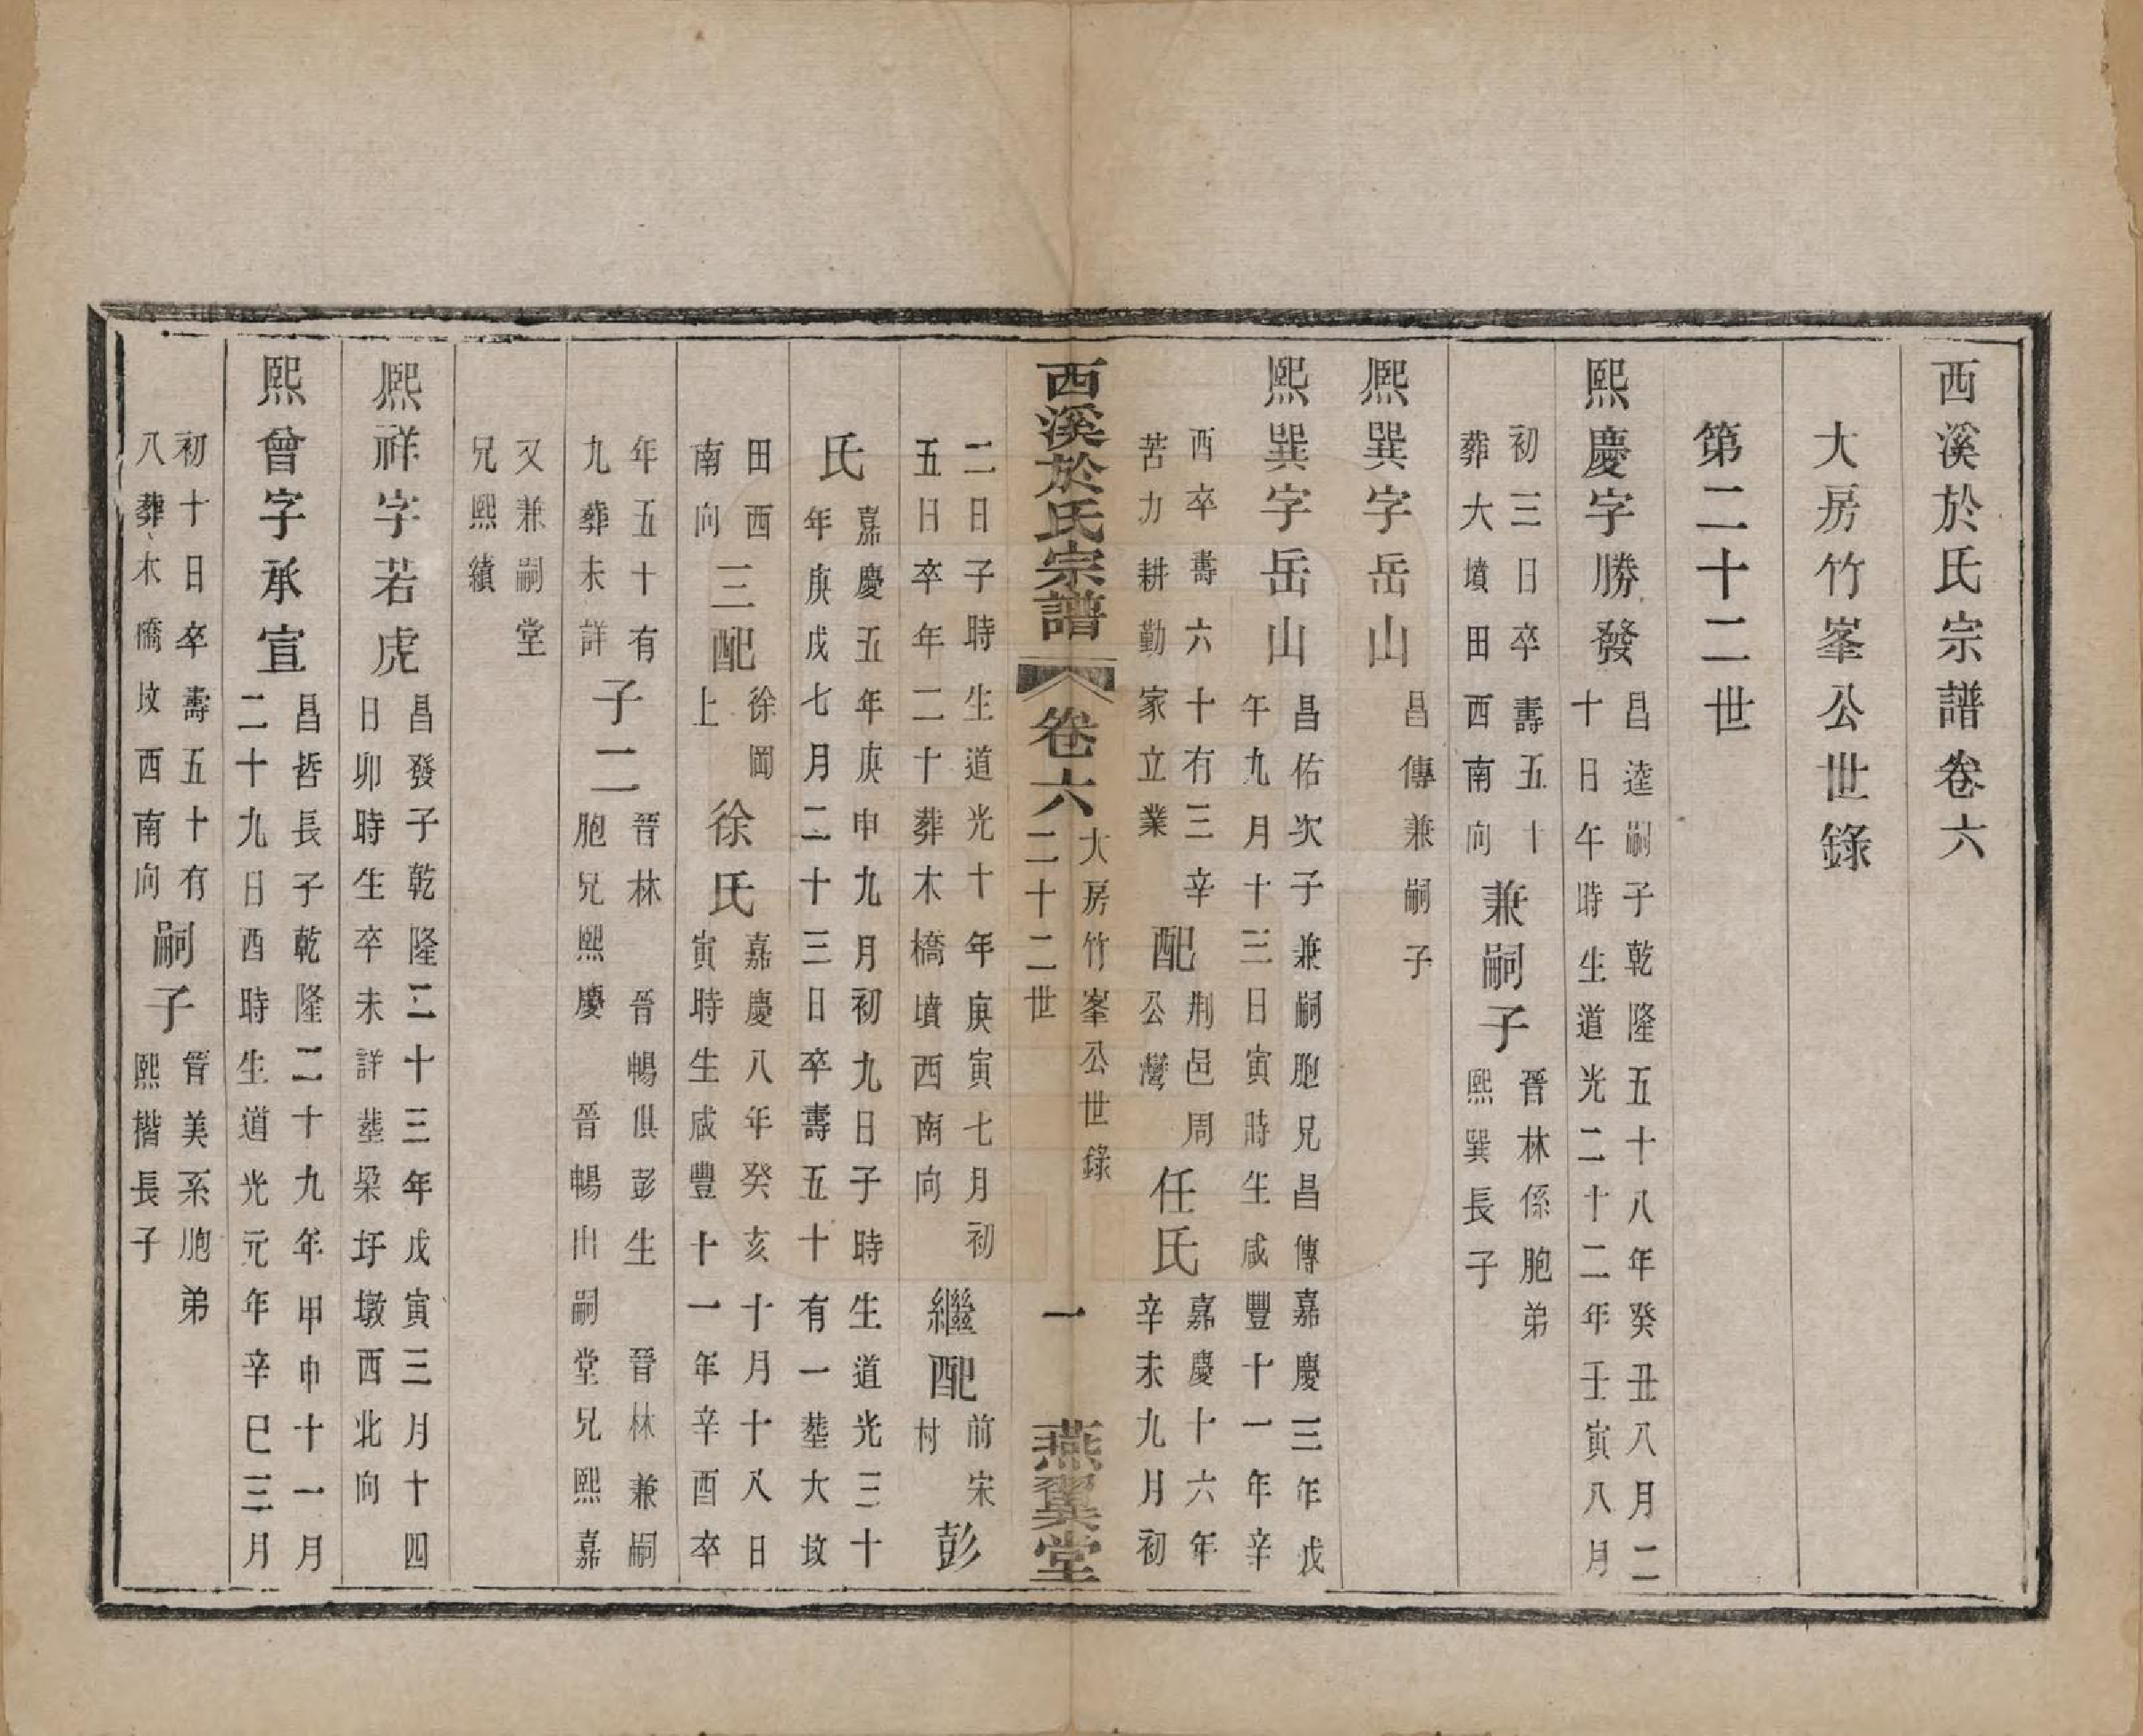 西溪於氏宗譜卷六
大房竹峯公世錄
第二十二世
熙慶字勝發
昌逵嗣子乾隆五十八年癸丑八月二
十日午時生道光二十二年壬寅八月
初三日卒壽五十
葬大墳田西南向
兼嗣子
晉林係胞弟
熙巽長子
熙巽字岳山
昌傳兼嗣子
熙巽字岳山
昌佑次子兼嗣胞兄昌傳嘉慶三年戊
午九月十三日寅時生咸豐十一年辛
酉卒壽六十有三辛
苦力耕勤家立業
配
荆邑周
公灣
任氏
嘉慶十六年
辛未九月初
西溪於氏宗譜
卷六
大房竹峯公世錄
二十二世
一
燕翼堂
二日子時生道光十年庚寅七月初
五日卒年二十葬木橋墳西南向
繼配
前宋
村
彭
氏
嘉慶五年庚申九月初九日子時生道光三十
年庚戌七月二十三日卒壽五十有一塟大坟
田西
南向
三配
徐岡
上
徐氏
嘉慶八年癸亥十月十八日
寅時生咸豐十一年辛酉卒
年五十有
九葬未詳
子二
晉林 晉暢俱彭生 晉林兼嗣
胞兄熙慶 晉暢出嗣堂兄熙嘉
又兼嗣堂
兄熙績
熙祥字若虎
昌發子乾隆二十三年戊寅三月十四
日卯時生卒未詳塟杲圩墩西北向
熙曾字承宣
昌哲長子乾隆二十九年甲申十一月
二十九日酉時生道光元年辛巳三月
初十日卒壽五十有
八葬木橋坟西南向
嗣子
晉美系胞弟
熙楷長子